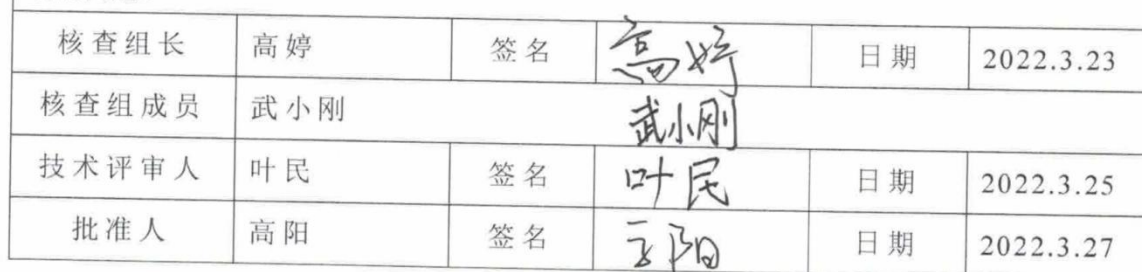 核查组长 高婷 签名 高婷 日期 2022.3.23
核查组成员 武小刚 武小刚
技术评审人 叶民 签名 叶民 日期 2022.3.25
批准人 高阳 签名 高阳 日期 2022.3.27